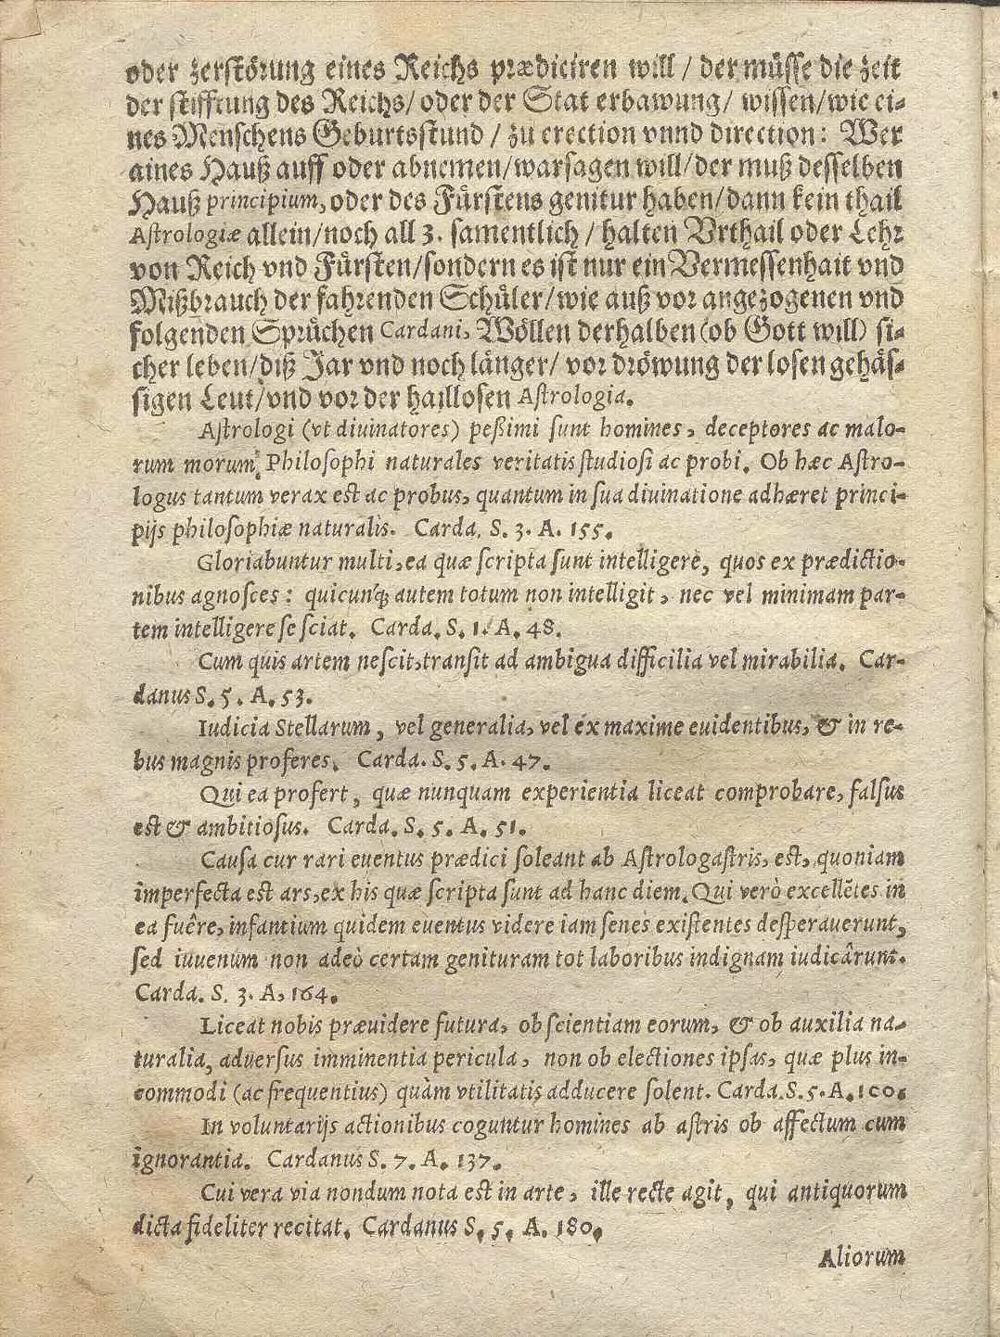 oder zerstörung eines Reichs prædiciren will / der müsse die zeit
der stifftung des Reichs/ oder der Stat erbawung/ wissen/wie ei-
nes Menschens Geburtsstund / zu erection vnnd direction: Wer
aines Hauß auff oder abnemen/warsagen will/der muß desselben
Hauß principium, oder des Fürstens genitur haben/dann kein thail
Astrologiæ allein/noch all 3. samentlich / halten Vrthail oder Lehr
von Reich vnd Fürsten/sondern es ist nur ein Vermessenhait vnd
Mißbrauch der fahrenden Schüler/wie auß vor angezogenen vnd
folgenden Sprüchen Cardani, Wöllen derhalben (ob Gott will) si-
cher leben/diß Jar vnd noch länger/ vor dröwung der losen gehäs-
sigen Leut/vnd vor der haillosen Astrologia.
Astrologi (vt diuinatores) peßimi sunt homines, deceptores ac malo-
rum morum: Philosophi naturales veritatis studiosi ac probi. Ob hæc Astro-
logus tantum verax est ac probus, quantum in sua diuinatione adhæret princi-
pijs philosophiæ naturalis. Carda. S. 3. A. 155.
Gloriabuntur multi, ea quæ scripta sunt intelligere, quos ex prædictio-
nibus agnosces: quicunq; autem totum non intelligit, nec vel minimam par-
tem intelligere se sciat. Carda. S. 1. A. 48.
Cum quis artem nescit, transit ad ambigua difficilia vel mirabilia. Car-
danus S. 5. A. 53.
Iudicia Stellarum, vel generalia, vel ex maxime euidentibus, & in re-
bus magnis proferes. Carda. S. 5. A. 47.
Qui ea profert, quæ nunquam experientia liceat comprobare, falsus
est & ambitiosus. Carda. S. 5. A. 51.
Causa cur rari euentus prædici soleant ab Astrologastris, est, quoniam
imperfecta est ars, ex his quæ scripta sunt ad hanc diem. Qui verò excellētes in
ea fuêre, infantium quidem euentus videre iam senes existentes desperauerunt,
sed iuuenum non adeò certam genituram tot laboribus indignam iudicârunt.
Carda. S. 3. A, 164.
Liceat nobis præuidere futura, ob scientiam eorum, & ob auxilia na-
turalia, aduersus imminentia pericula, non ob electiones ipsas, quæ plus in-
commodi (ac frequentius) quàm vtilitatis adducere solent. Carda. S. 5. A. 100.
In voluntarijs actionibus coguntur homines ab astris ob affectum cum
ignorantia. Cardanus S. 7. A. 137.
Cui vera via nondum nota est in arte, ille recte agit, qui antiquorum
dicta fideliter recitat. Cardanus S. 5. A. 180.
Aliorum